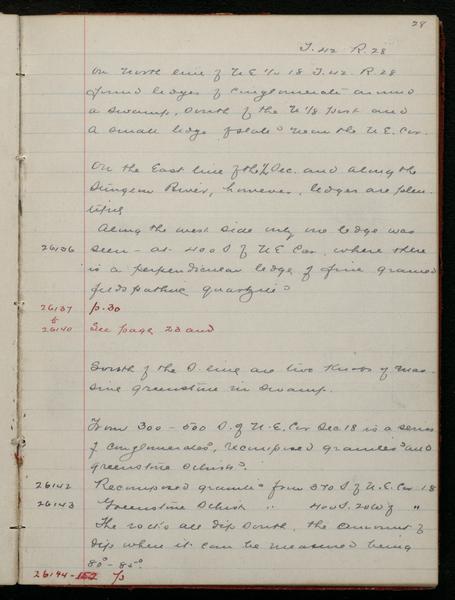 28
T. 42 R. 28
On North line of N E ¼ 18 T. 42 R. 28
found ledges of Conglomerate around
a swamp, South of the N 1/8 post and
a small ledge of slate near the N. E. Cor.
On the East line of the ½ Sec. and along the
Sturgeon River, however, ledges are plen-
tiful
Along the west side only one ledge was
26136 seen - at 400 S of N E Cor. where there
is a perpendicular ledge of fine grained
feldspathic quartzite
26137 p. 30
&
26140 See page 23 and
South of the S. line are two Knobs of mas-
sive greenstone in swamp.
From 300 - 500 S. of N. E. Cor Sec 18 is a series
of conglomerates, recomposed granites and
greenstone schists.
26142 Recomposed granite from 370 S of N. E. Cor 18
26143 Greenstone Schist " 400 S. 20 W of "
The rocks all dip South, the amount of
dip where it can be measured being
80° - 85°.
26144 - 152 /s